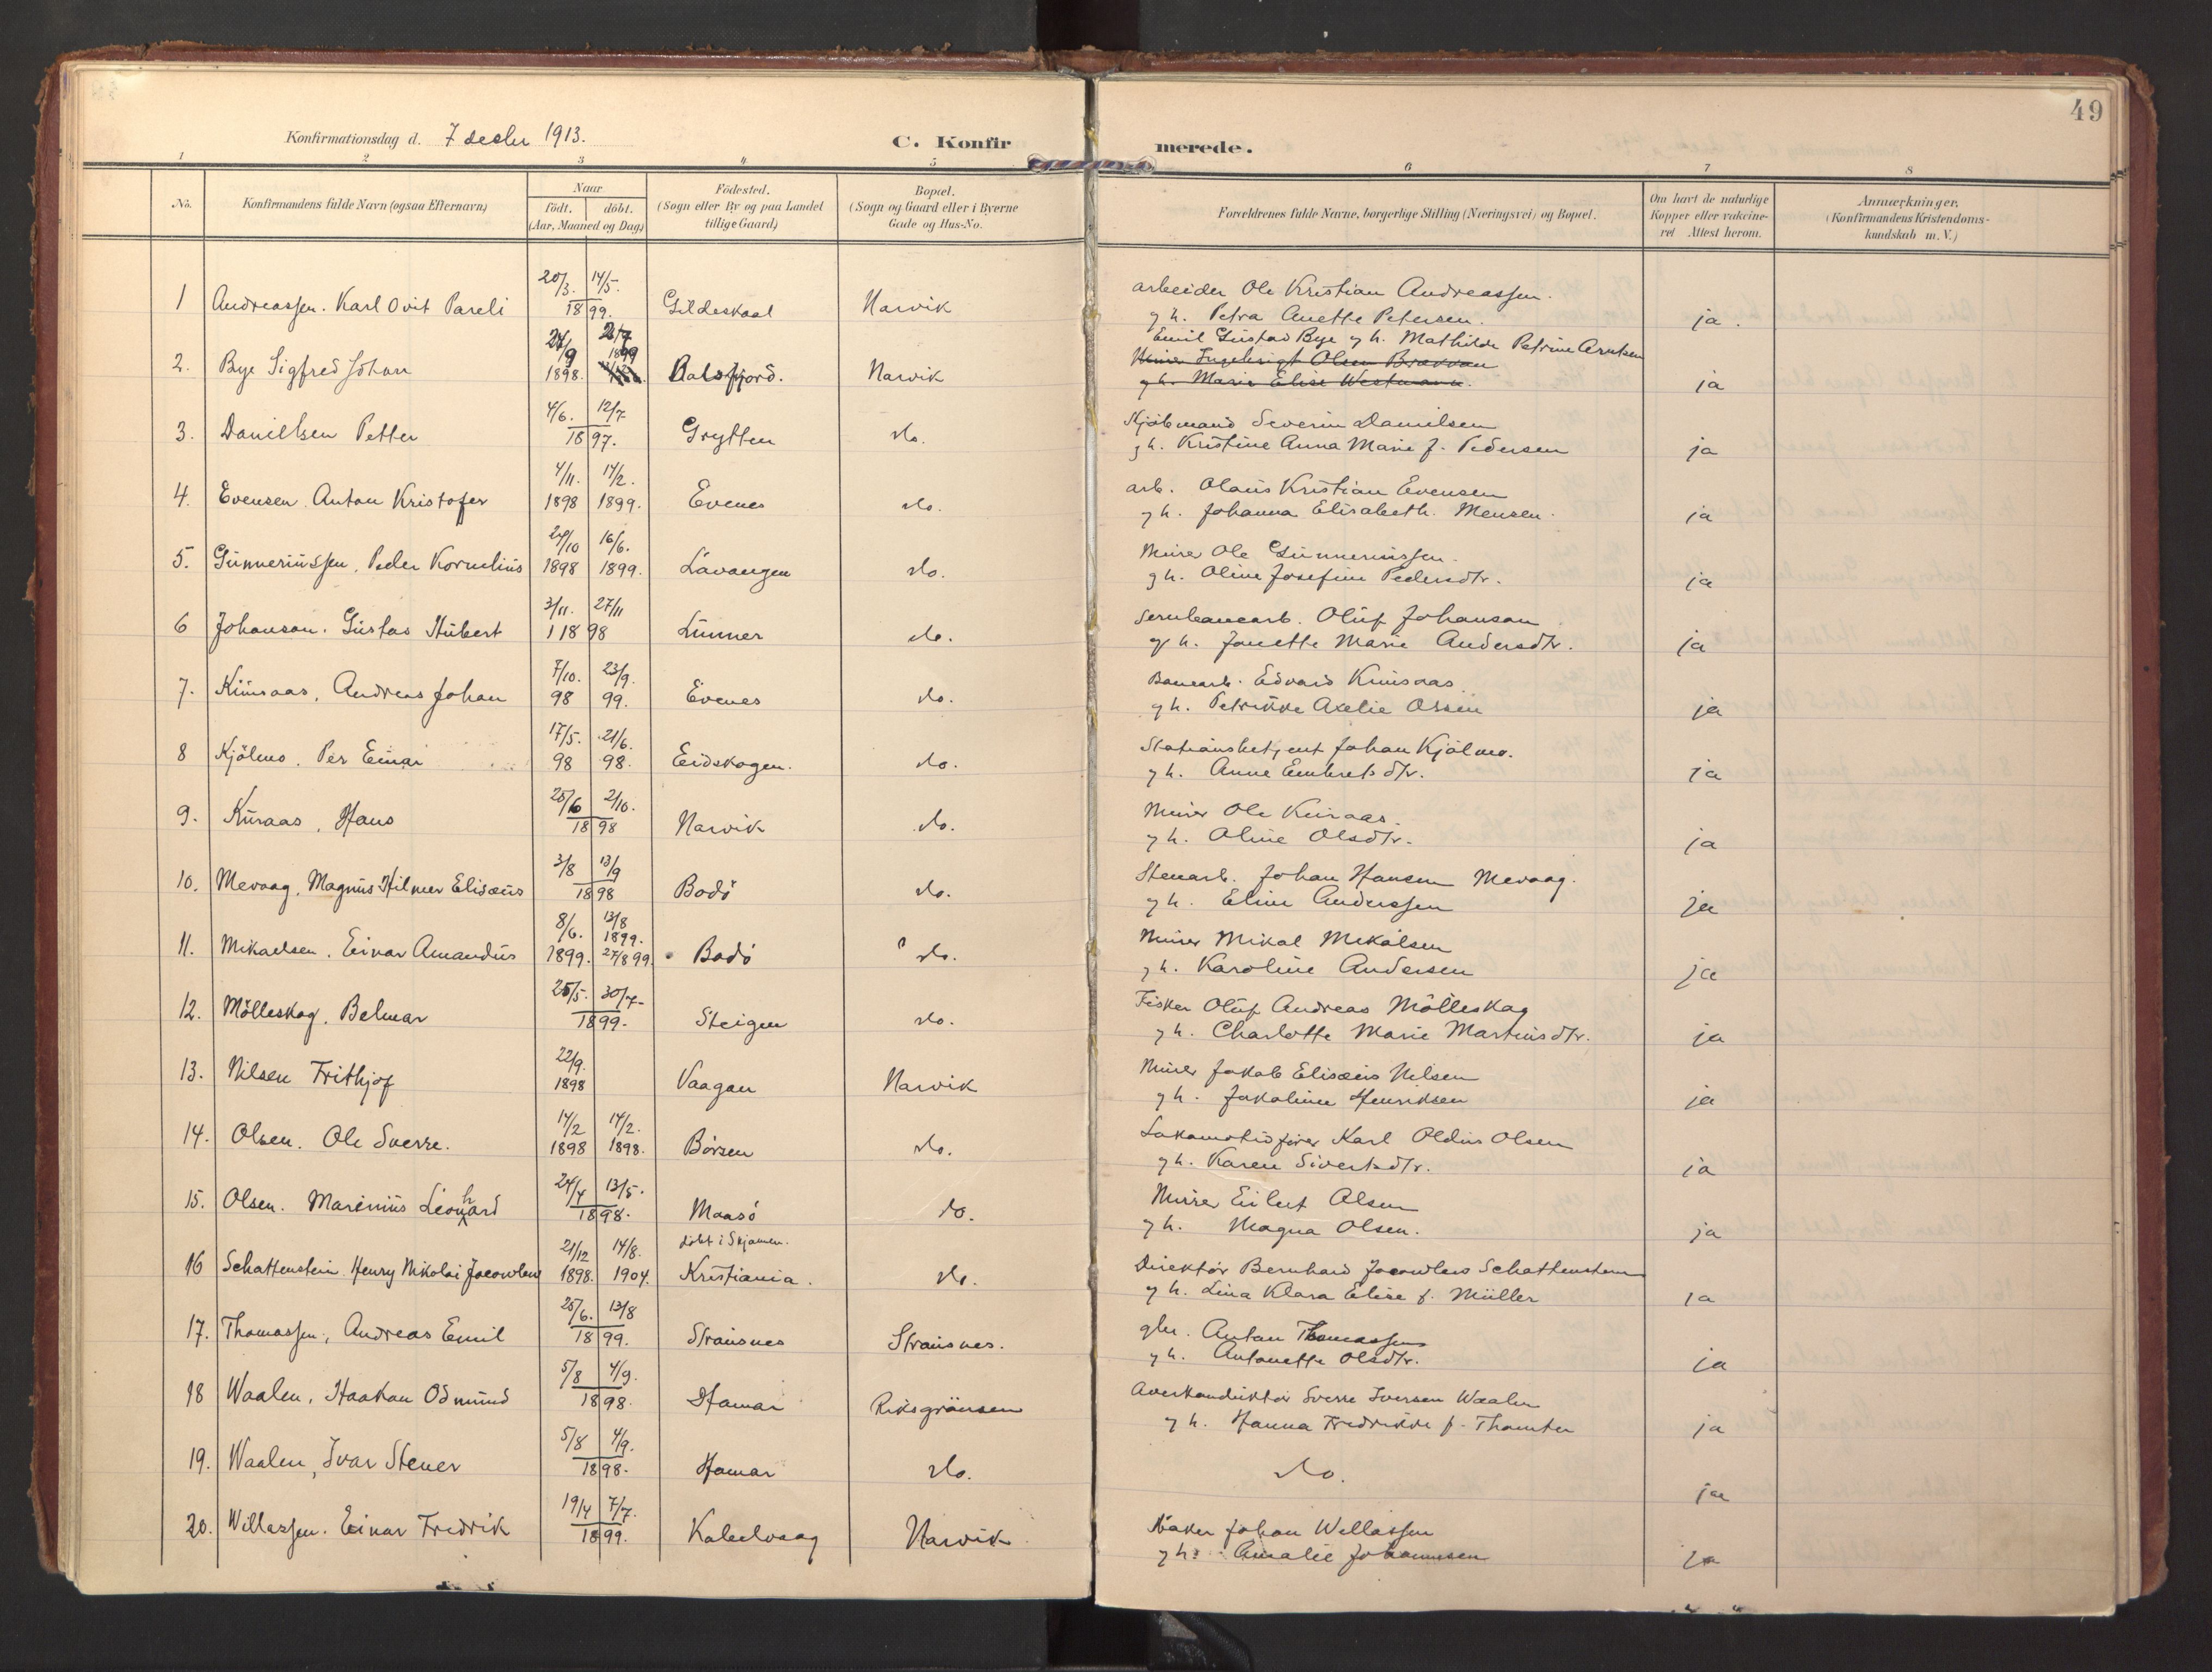 49
Konfirmationsdag d. 7 desbr 1913.
C. Konfirmerede.
1 2 3 4 5 6 7 8
No.
Konfirmandens fulde Navn (ogsaa Efternavn)
Naar
födt. döbt.
(Aar, Maaned og Dag)
Födested.
(Sogn eller By og paa Landet
tillige Gaard)
Bopæl.
(Sogn og Gaard eller i Byerne
Gade og Hus-No.
Forældrenes fulde Navne, borgerlige Stilling (Næringsvei) og Bopæl.
Om havt de naturlige
Kopper eller vakcine-
ret Attest herom.
Anmærkninger.
(Konfirmandens Kristendoms-
kundskab m. V.)
1 Andreassen. Karl Ovit Pareli 20/3. 14/5. 1899. Gildeskaal Narvik
arbeider Ole Kristian Andreassen.
g h. Petra Anette Petersen. ja.
2. Bye Sigfred Johan 1898. 1899 Balsfjord. Narvik
Emil Gustav Bye g h. Mathilde Petrine Arntsen
Olsen
g h. Marie Elise Westmann. ja
3. Daniellsen Petter 4/6. 12/7 1897. Grytten do.
Kjöbmand Severin Danielsen
g h. Kristine Anna Marie f. Pedersen ja
4. Evensen Anton Kristofer 4/11. 1898 14/2. 1899. Evenes do.
arb. Olaus Kristian Evensen
g h. Johanna Elisabeth. Mensen. ja
5. Gunneriussen, Peder Kornelius 24/10 1898 16/6. 1899. Lavangen do.
Murer Ole Gunneriussen.
g h. Oline Josefine Pedersdtr. ja
6 Johanson. Gustav Hubert 3/11. 27/11 1 1898 Lunner do.
Jernbanearb. Oluf Johanson
g h. Janette Marie Andersdtr. ja
7. Andreas Johan 7/10. 98 23/9. 99. Evenes do.
Banearb. Edvard
g h. Petrikke Axelie Olsen ja
8 Kjölmo. Per Einar 17/5. 98 21/6. 98. Eidskogen. do.
Stationsbetjent Johan Kjölmo.
g h. Anne Embretsdtr. ja
9. Kuraas, Hans 25/6 2/10. 1898 Narvik do.
Murer Ole Kuraas.
g h. Oline Olsdtr. ja
10. Mevaag, Magnus Hilmer Elisæus 3/8 13/9 1898 Bodö do.
Stenarb. Johan Hansen Mevaag.
g h. Eline Anderssen ja
11. Mikaelsen, Einar Amandus 8/6. 1899. 13/8 1899. 27/8 99. Bodö do.
Murer Mikal Mikalsen
g h. Karoline Andersen ja
12. Mölleskog, Belmar 25/5. 30/7. 1899. Steigen do.
Fisker Oluf Andreas Mölleskog
g h. Charlotte Marie Martinsdtr. ja
13. Nilsen Frithjof 22/9. 1898 Vaagan Narvik
Murer Jakob Elisæus Nilsen
g h. Jakobine Henriksen ja
14. Olsen. Ole Sverre. 14/2 1898 14/2. 1898. Börsen do.
Lokomotivförer Karl Oldius Olsen
g h. Karen Sivertsdtr. ja
15. Olsen. Marenius Leonhard 24/4 13/5. 1898. Maasö do.
Murer Eilert Olsen
g h. Magna Olsen. ja
döbt i Skjomen.
16 Schattenstein. Henry Nikolai Jacowlew 21/12 1898. 14/8. 1904. Kristiania. do.
Direktör Bernhard Jacowlew Schattenstein
g h. Lina Klara Elise f. Müller ja
17. Thomassen, Andreas Emil 25/6. 13/8 1899. Strausnes Straumsnes.
gbr. Anton Thomassen
g h. Antonette Olsdtr. ja
18 Waalen, Haakon Odmund 5/8 4/9. 1898. Hamar Riksgränsen
Overkonduktör Sverre Iversen Waalen
g h. Hanna Fredrikke f. Thomter ja
19. Waalen, Ivar Stener 5/8 4/9. 1898. Hamar do.
do. ja
20. Willassen. Einar Fredrik 19/4 7/7. 1899. Kabelvaag Narvik
Baker Johan Willassen
g h. Amalie Johannesen ja